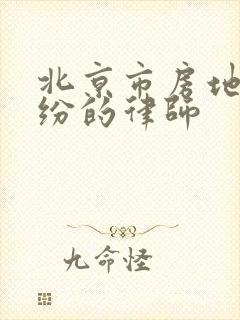 北京市房地
纷的律师
九命怪